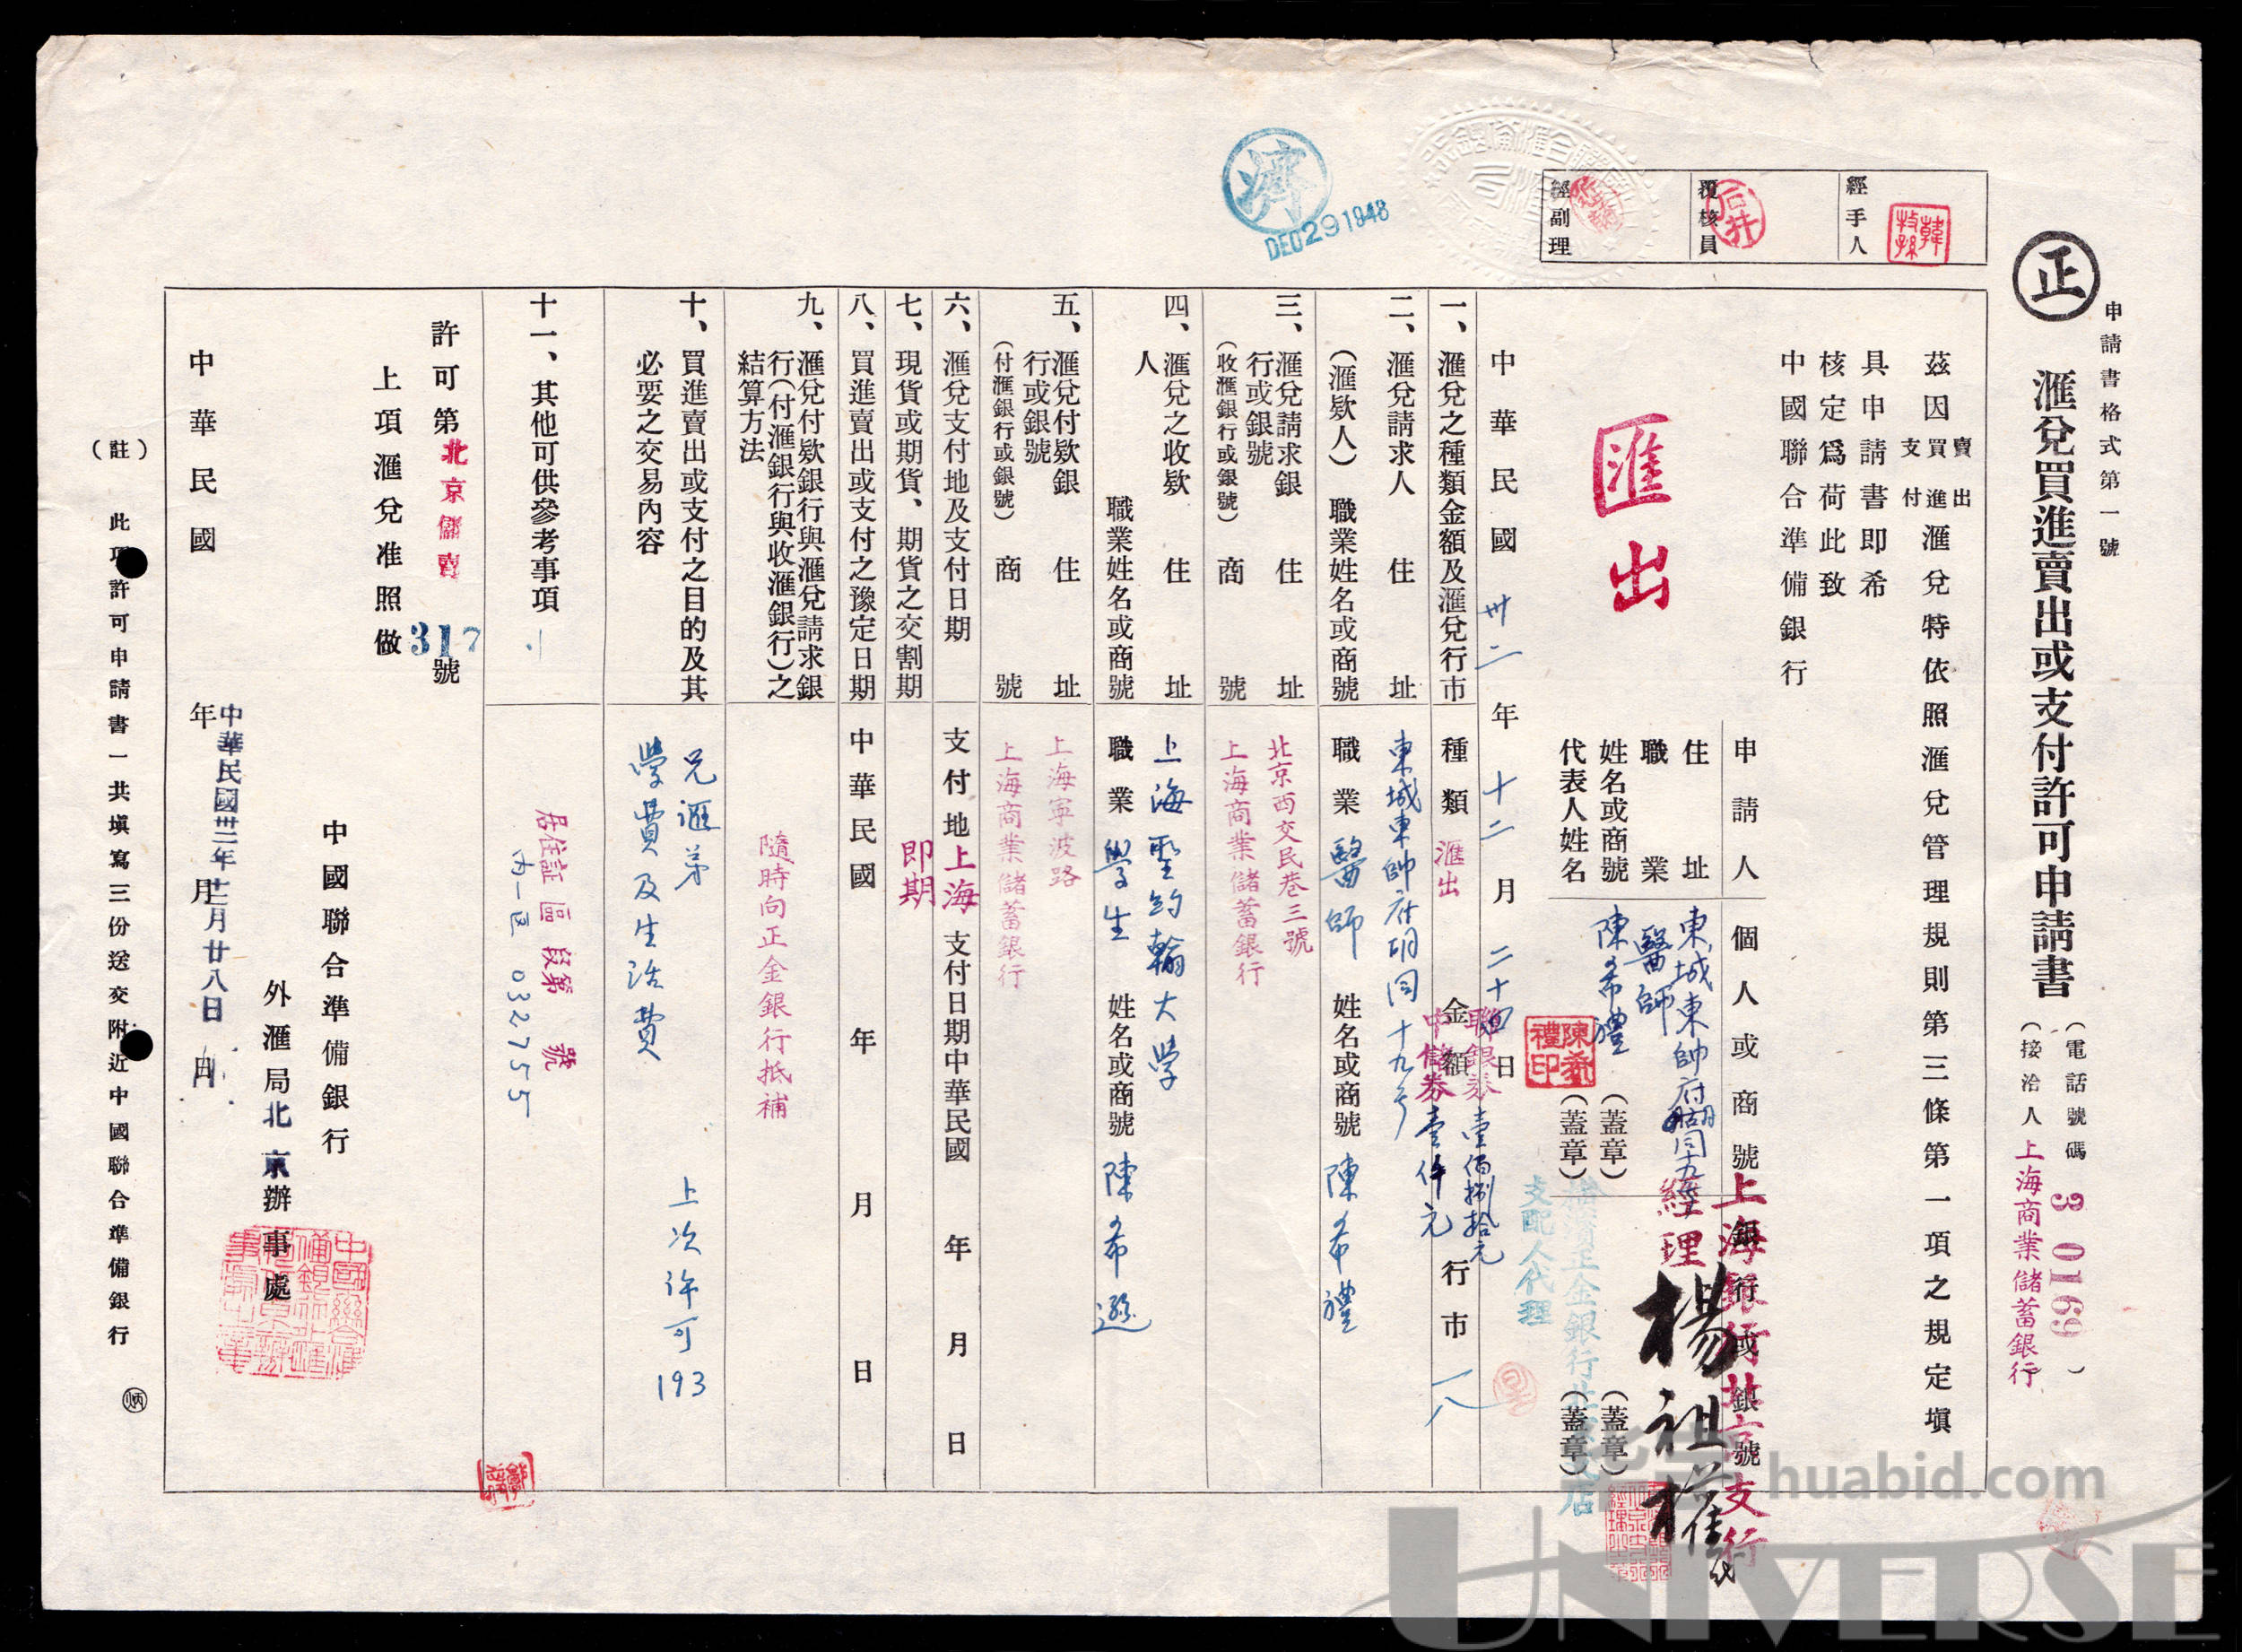 申請書格式第一號
正
滙兌買進賣出或支付許可申請書
（電話號碼 3 0169 ）
（接洽人 上海商業儲蓄銀行 ）
茲因賣出買進支付滙兌特依照滙兌管理規則第三條第一項之規定塡
具申請書即希
核定爲荷此致
中國聯合準備銀行
經手人
覆核員
經副理
滙出
申請人
個人或商號
銀行或銀號
住址
東城東帥府胡同十九號
職業
醫師
姓名或商號
陳希禮
（蓋章）
（蓋章）
代表人姓名
（蓋章）
（蓋章）
陳希禮印
上海銀行北京支行
經理
楊祖
橫濱正金銀行北京支店
支配人代理
中華民國卅二年十二月二十四日
一、滙兌之種類金額及滙兌行市
種類 滙出
金額 聯銀券壹佰捌拾元
中儲券壹仟元
行市 一八
二、滙兌請求人
（滙欵人）
住址
東城東帥府胡同十九号
職業姓名或商號
職業 醫師
姓名或商號 陳希禮
三、滙兌請求銀行或銀號
（收滙銀行或銀號）
住址
北京西交民巷三號
商號
上海商業儲蓄銀行
四、滙兌之收欵人
住址
上海聖約翰大学
職業姓名或商號
職業 學生
姓名或商號 陳希遜
五、滙兌付欵銀行或銀號
（付滙銀行或銀號）
住址
上海寧波路
商號
上海商業儲蓄銀行
六、滙兌支付地及支付日期
支付地 上海 支付日期中華民國 年 月 日
七、現貨或期貨、期貨之交割期
即期
八、買進賣出或支付之豫定日期
中華民國 年 月 日
九、滙兌付欵銀行與滙兌請求銀行（付滙銀行與收滙銀行）之結算方法
隨時向正金銀行抵補
十、買進賣出或支付之目的及其必要之交易內容
兄滙弟
學費及生活費
上次许可193
十一、其他可供參考事項
居住証 區 段第 號
内一區 032755
許可第北京儲賣317號
上項滙兌准照做
中國聯合準備銀行
外滙局北京辦事處
中華民國 年 月 日
中華民國卅二年十二月廿八日
（註） 此項許可申請書一共塡寫三份送交附近中國聯合準備銀行
濟
DEC 29 1948
huabid.com
UNIVERSE